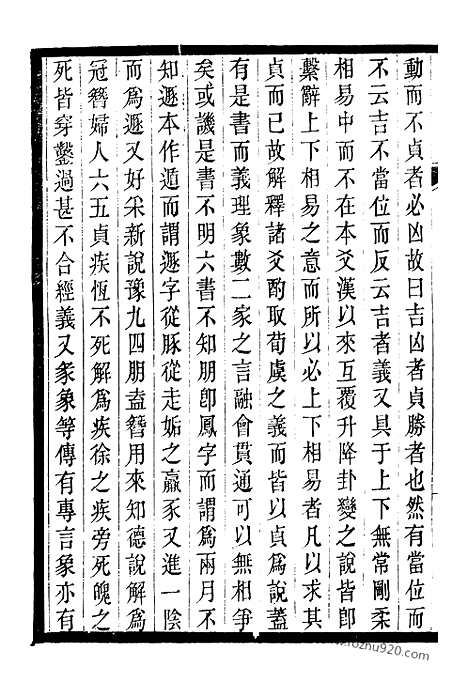 動而不貞者必凶故曰吉凶者貞勝者也然有當位而
不云吉不當位而反云吉者義又具于上下無常剛柔
相易中而不在本爻漢以來互覆升降卦變之說皆卽
繫辭上下相易之意而所以必上下相易者凡以求其
貞而已故解釋諸爻酌取荀虞之義而皆以貞爲說蓋
有是書而義理象數二家之言融會貫通可以無相爭
矣或譏是書不明六書不知朋卽鳳字而謂爲兩月不
知遯本作遁而謂遯字從豚從走姤之羸豕又進一陰
而爲遯又好采新說豫九四朋盍簪用來知德說解爲
冠簪婦人六五貞疾恆不死解爲疾徐之疾旁死魄之
死皆穿鑿過甚不合經義又彖象等傳有專言象亦有
www.fozhu920.com